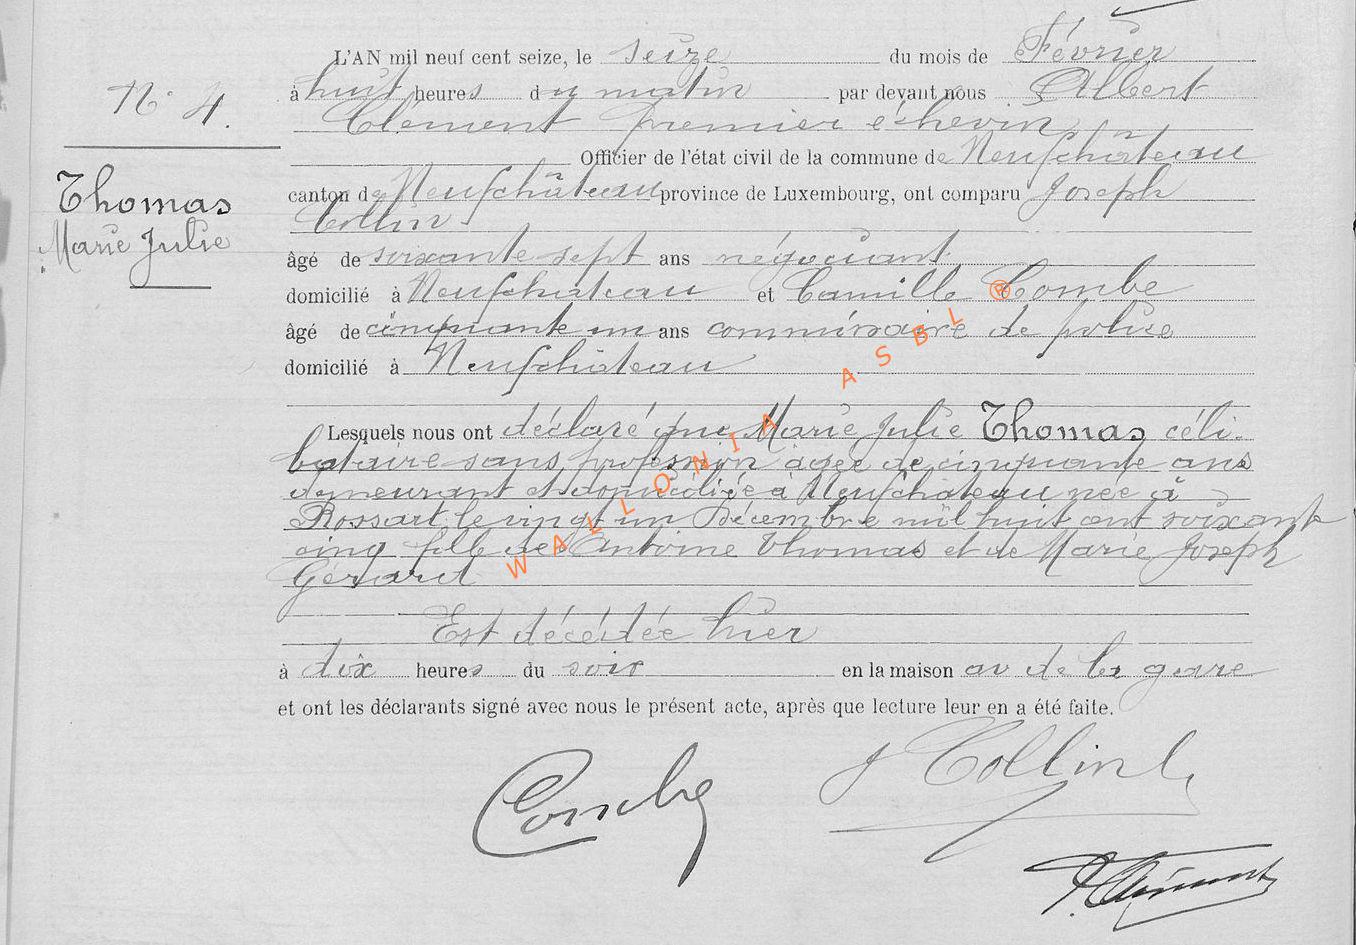 L'AN mil neuf cent seize, le seize du mois de Février
à huit heures du matin par devant nous Albert
N° 4.
Clément premier échevin
Officier de l'état civil de la commune de Neufchâteau
Thomas
Marie Julie
canton de Neufchâteau province de Luxembourg, ont comparu Joseph
Collin
âgé de soixante sept ans négociant
domicilié à Neufchâteau et Camille Combe
âgé de cinquante un ans commissaire de police
domicilié à Neufchâteau
Lesquels nous ont déclaré que Marie Julie Thomas céli-
bataire sans profession âgée de cinquante ans
demeurant et domiciliée à Neufchâteau née à
Rossart le vingt un Décembre mil huit cent soixante
cinq fille de Antoine Thomas et de Marie Joseph
Gérard
Est décédée hier
à dix heures du soir en la maison av de la gare
et ont les déclarants signé avec nous le présent acte, après que lecture leur en a été faite.
Combe
J Collin
A. Clément
WALLONIA ASBL ®